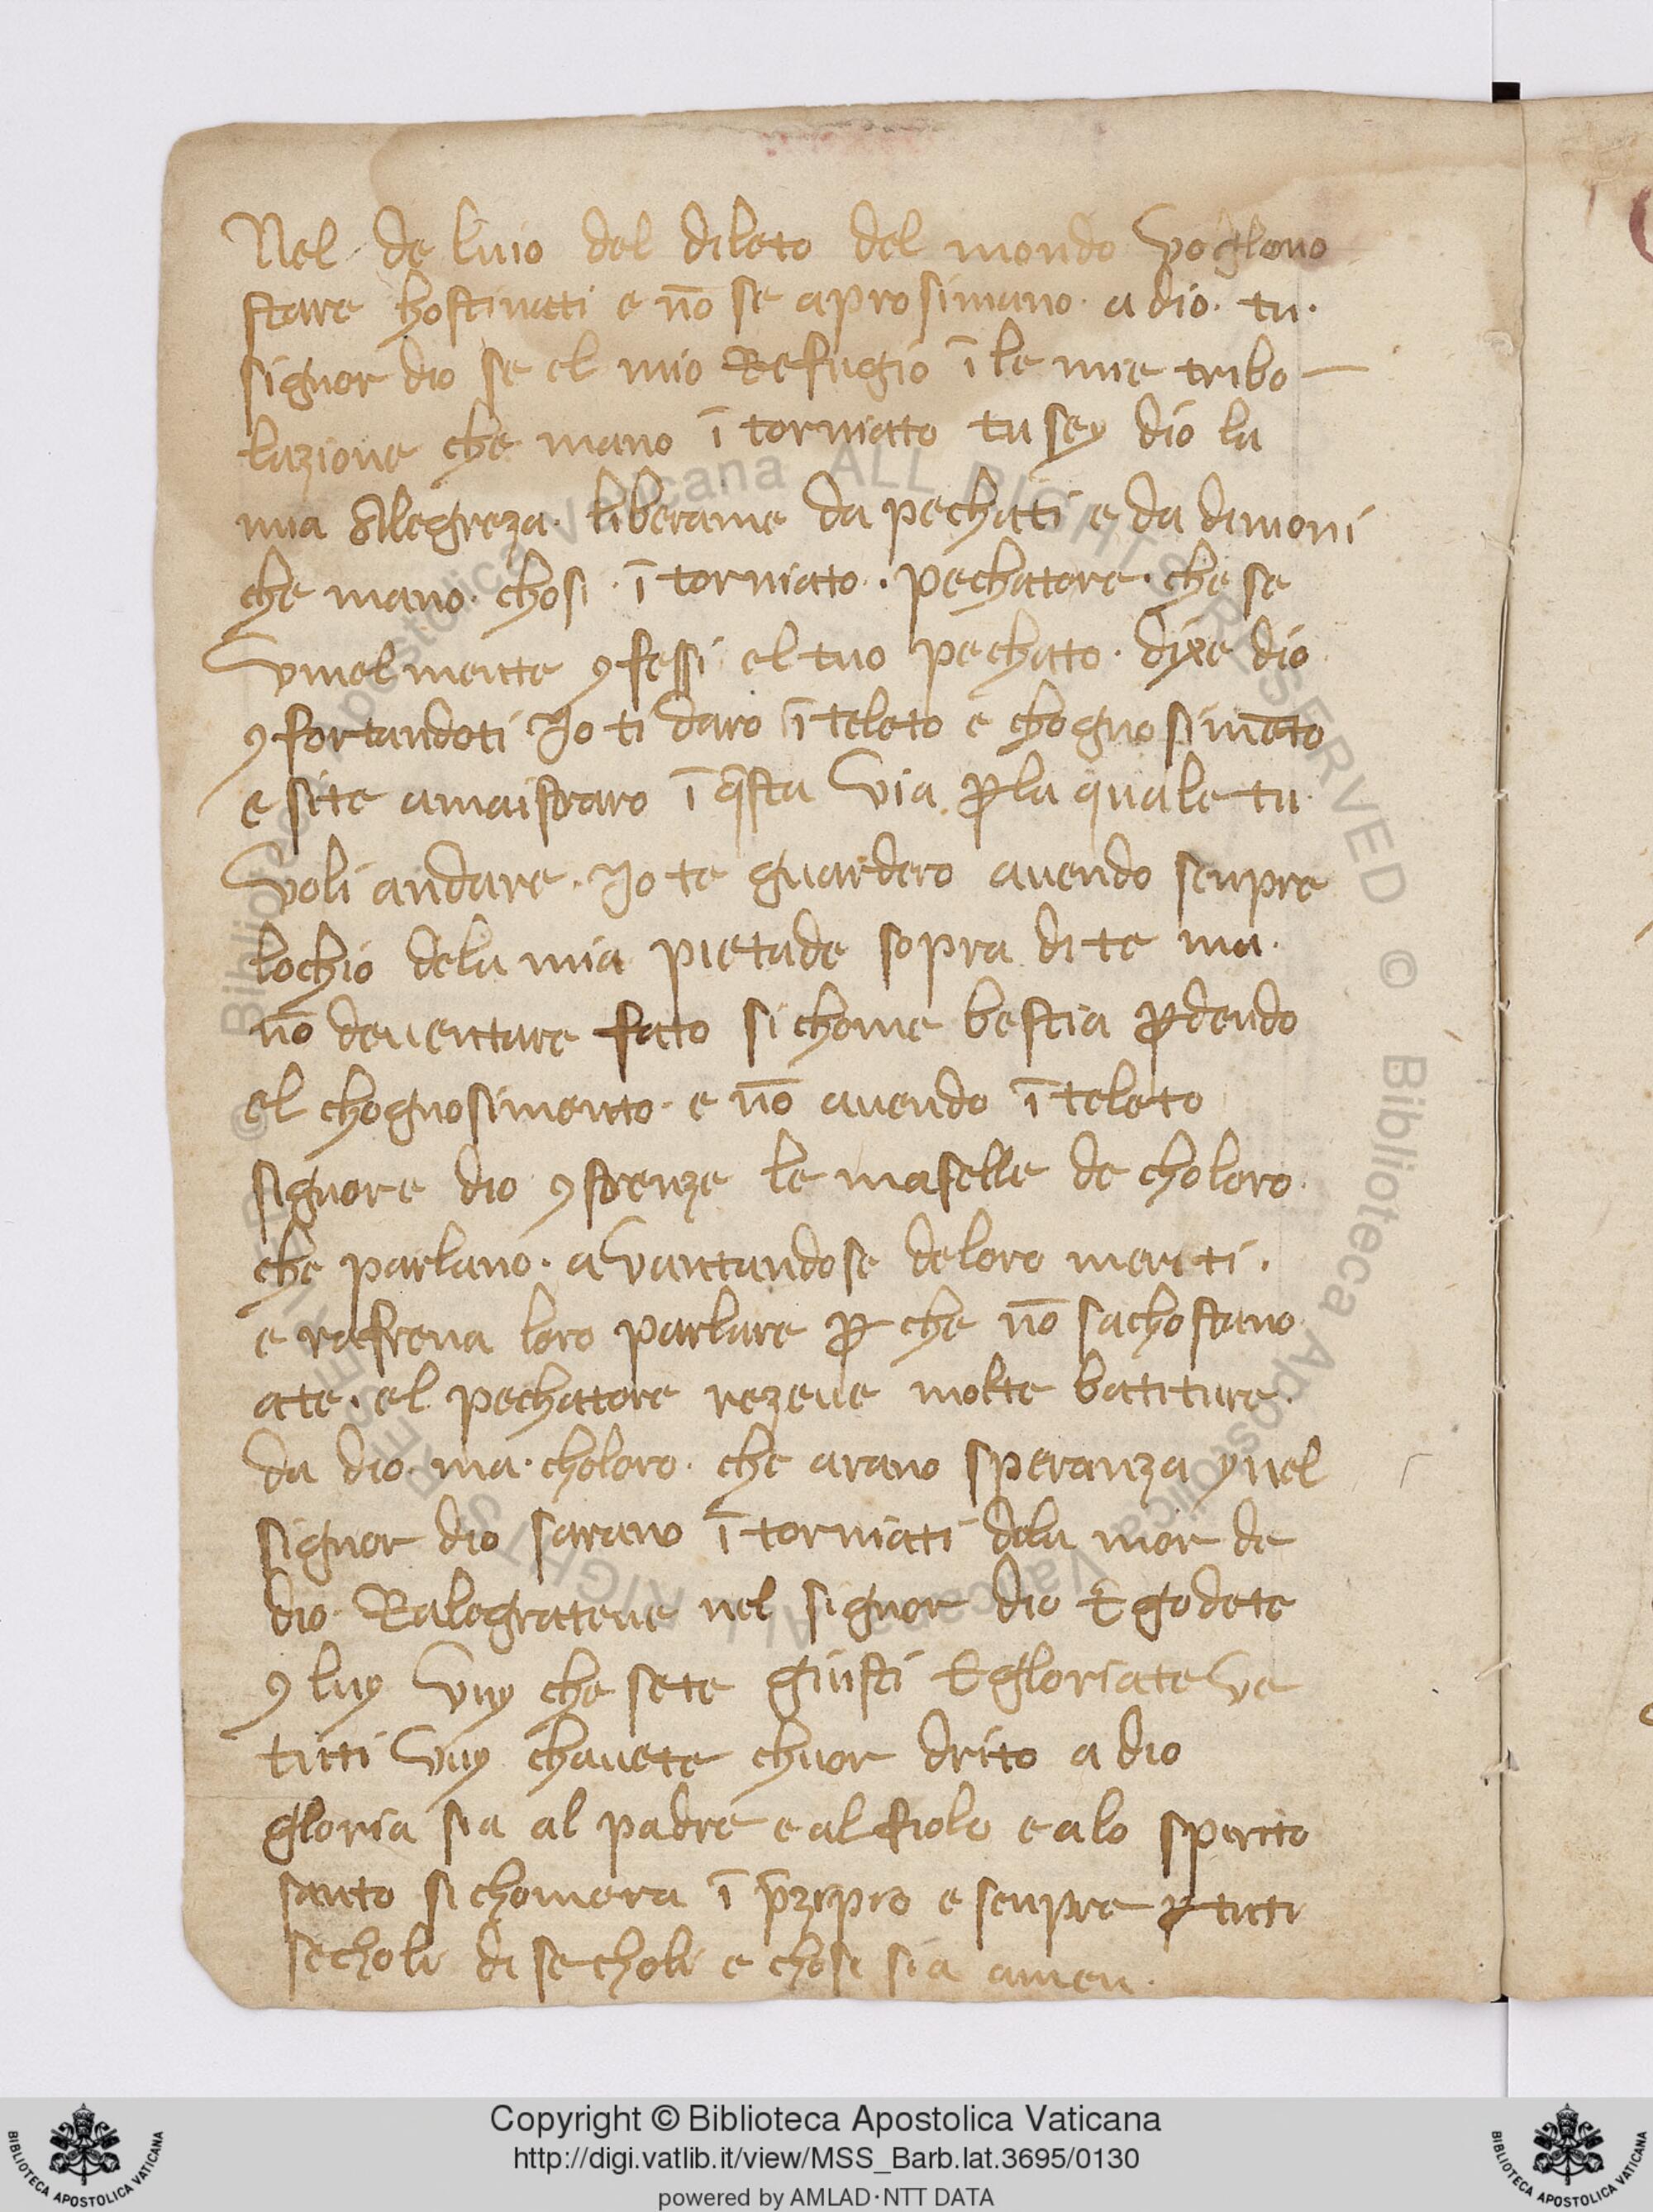 Nel de luuio del dileto del mondo voglono
stare hostinati e nō se aprosimano · a dio · tu ·
signor dio se el mio Refugio ī le mie tribo —
lazione che mano ī torniato tu sey dio la
mia Alegreza · liberame da pechati e da dimoni
che mano · chosi · ī torniato · pechatore · che se
vmelmente ꝯfessi el tuo pechato · dixe dio
ꝯfortandoti Io ti daro ī teleto e chognosimēto
e si te amaistraro ī q̄sta via ꝑ la quale tu
voli andare · Io te guardero auendo senpre
lochio dela mia pietade sopra di te ma ·
nō deuentare fato si chome bestia ꝑdendo
el chognosimento · e nō auendo ī teleto
signore dio ꝯstrenze le maselle de choloro
che parlano · avantandose deloro meriti ·
e rafrena loro parlare ꝑ che nō sachostano
ate · el pechatore rezeue molte batiture ·
da dio · ma · choloro · che arano speranza ynel
signor dio sarano ī torniati dela mor de
dio · Ralegrateue nel signor dio E godete
ꝯ luy vuy che sete giusti E gloriateve
tutti vuy chauete chuor drito a dio
gloria sia al padre e al fiolo e alo sperito
santo si chomera ī p̄zipio e senpre ꝑ tutti
secholi di secholi e chosi sia amen ·
Copyright © Biblioteca Apostolica Vaticana
http://digi.vatlib.it/view/MSS_Barb.lat.3695/0130
powered by AMLAD·NTT DATA
BIBLIOTECA APOSTOLICA VATICANA
BIBLIOTECA APOSTOLICA VATICANA
© Biblioteca Apostolica Vaticana ALL RIGHTS RESERVED
© Biblioteca Apostolica Vaticana ALL RIGHTS RESERVED